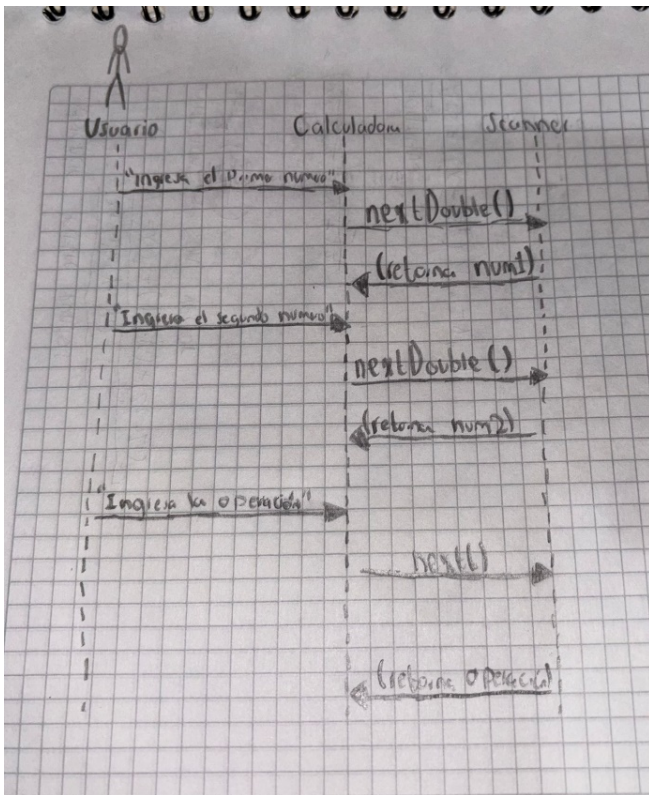 Usuario Calculadora Scanner
"Ingresa el Primer numero"
nextDouble()
(retorna num1)
"Ingresa el segundo numero"
nextDouble()
(retorna num2)
"Ingresa la operación"
next()
(retorna operación)